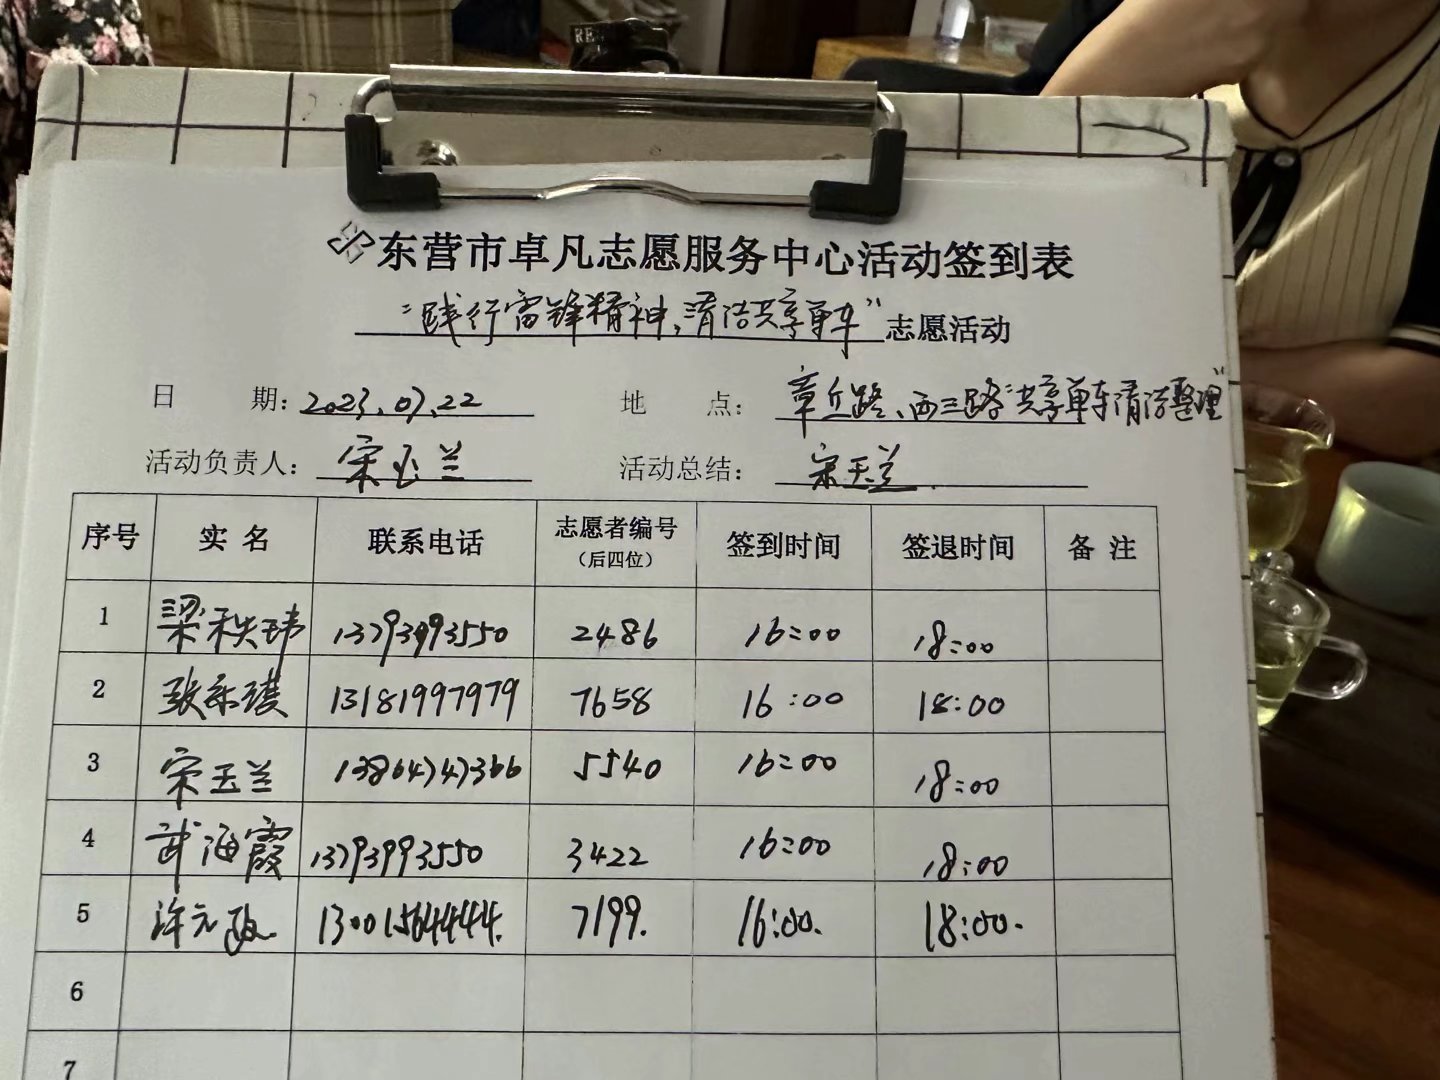 东营市卓凡志愿服务中心活动签到表
“践行雷锋精神，清洁共享单车”志愿活动
日 期：2023.07.22 地 点：章丘路、西三路“共享单车清洁整理”
活动负责人：宋玉兰 活动总结：宋玉兰.
序号 实名 联系电话 志愿者编号（后四位） 签到时间 签退时间 备注
1 梁秩玮 13793993550 2486 16:00 18:00
2 张乐璞 13181997979 7658 16:00 18:00
3 宋玉兰 13864747366 5540 16:00 18:00
4 武海霞 13793993550 3422 16:00 18:00
5 许元政 13001564444. 7199. 16:00. 18:00.
6
7